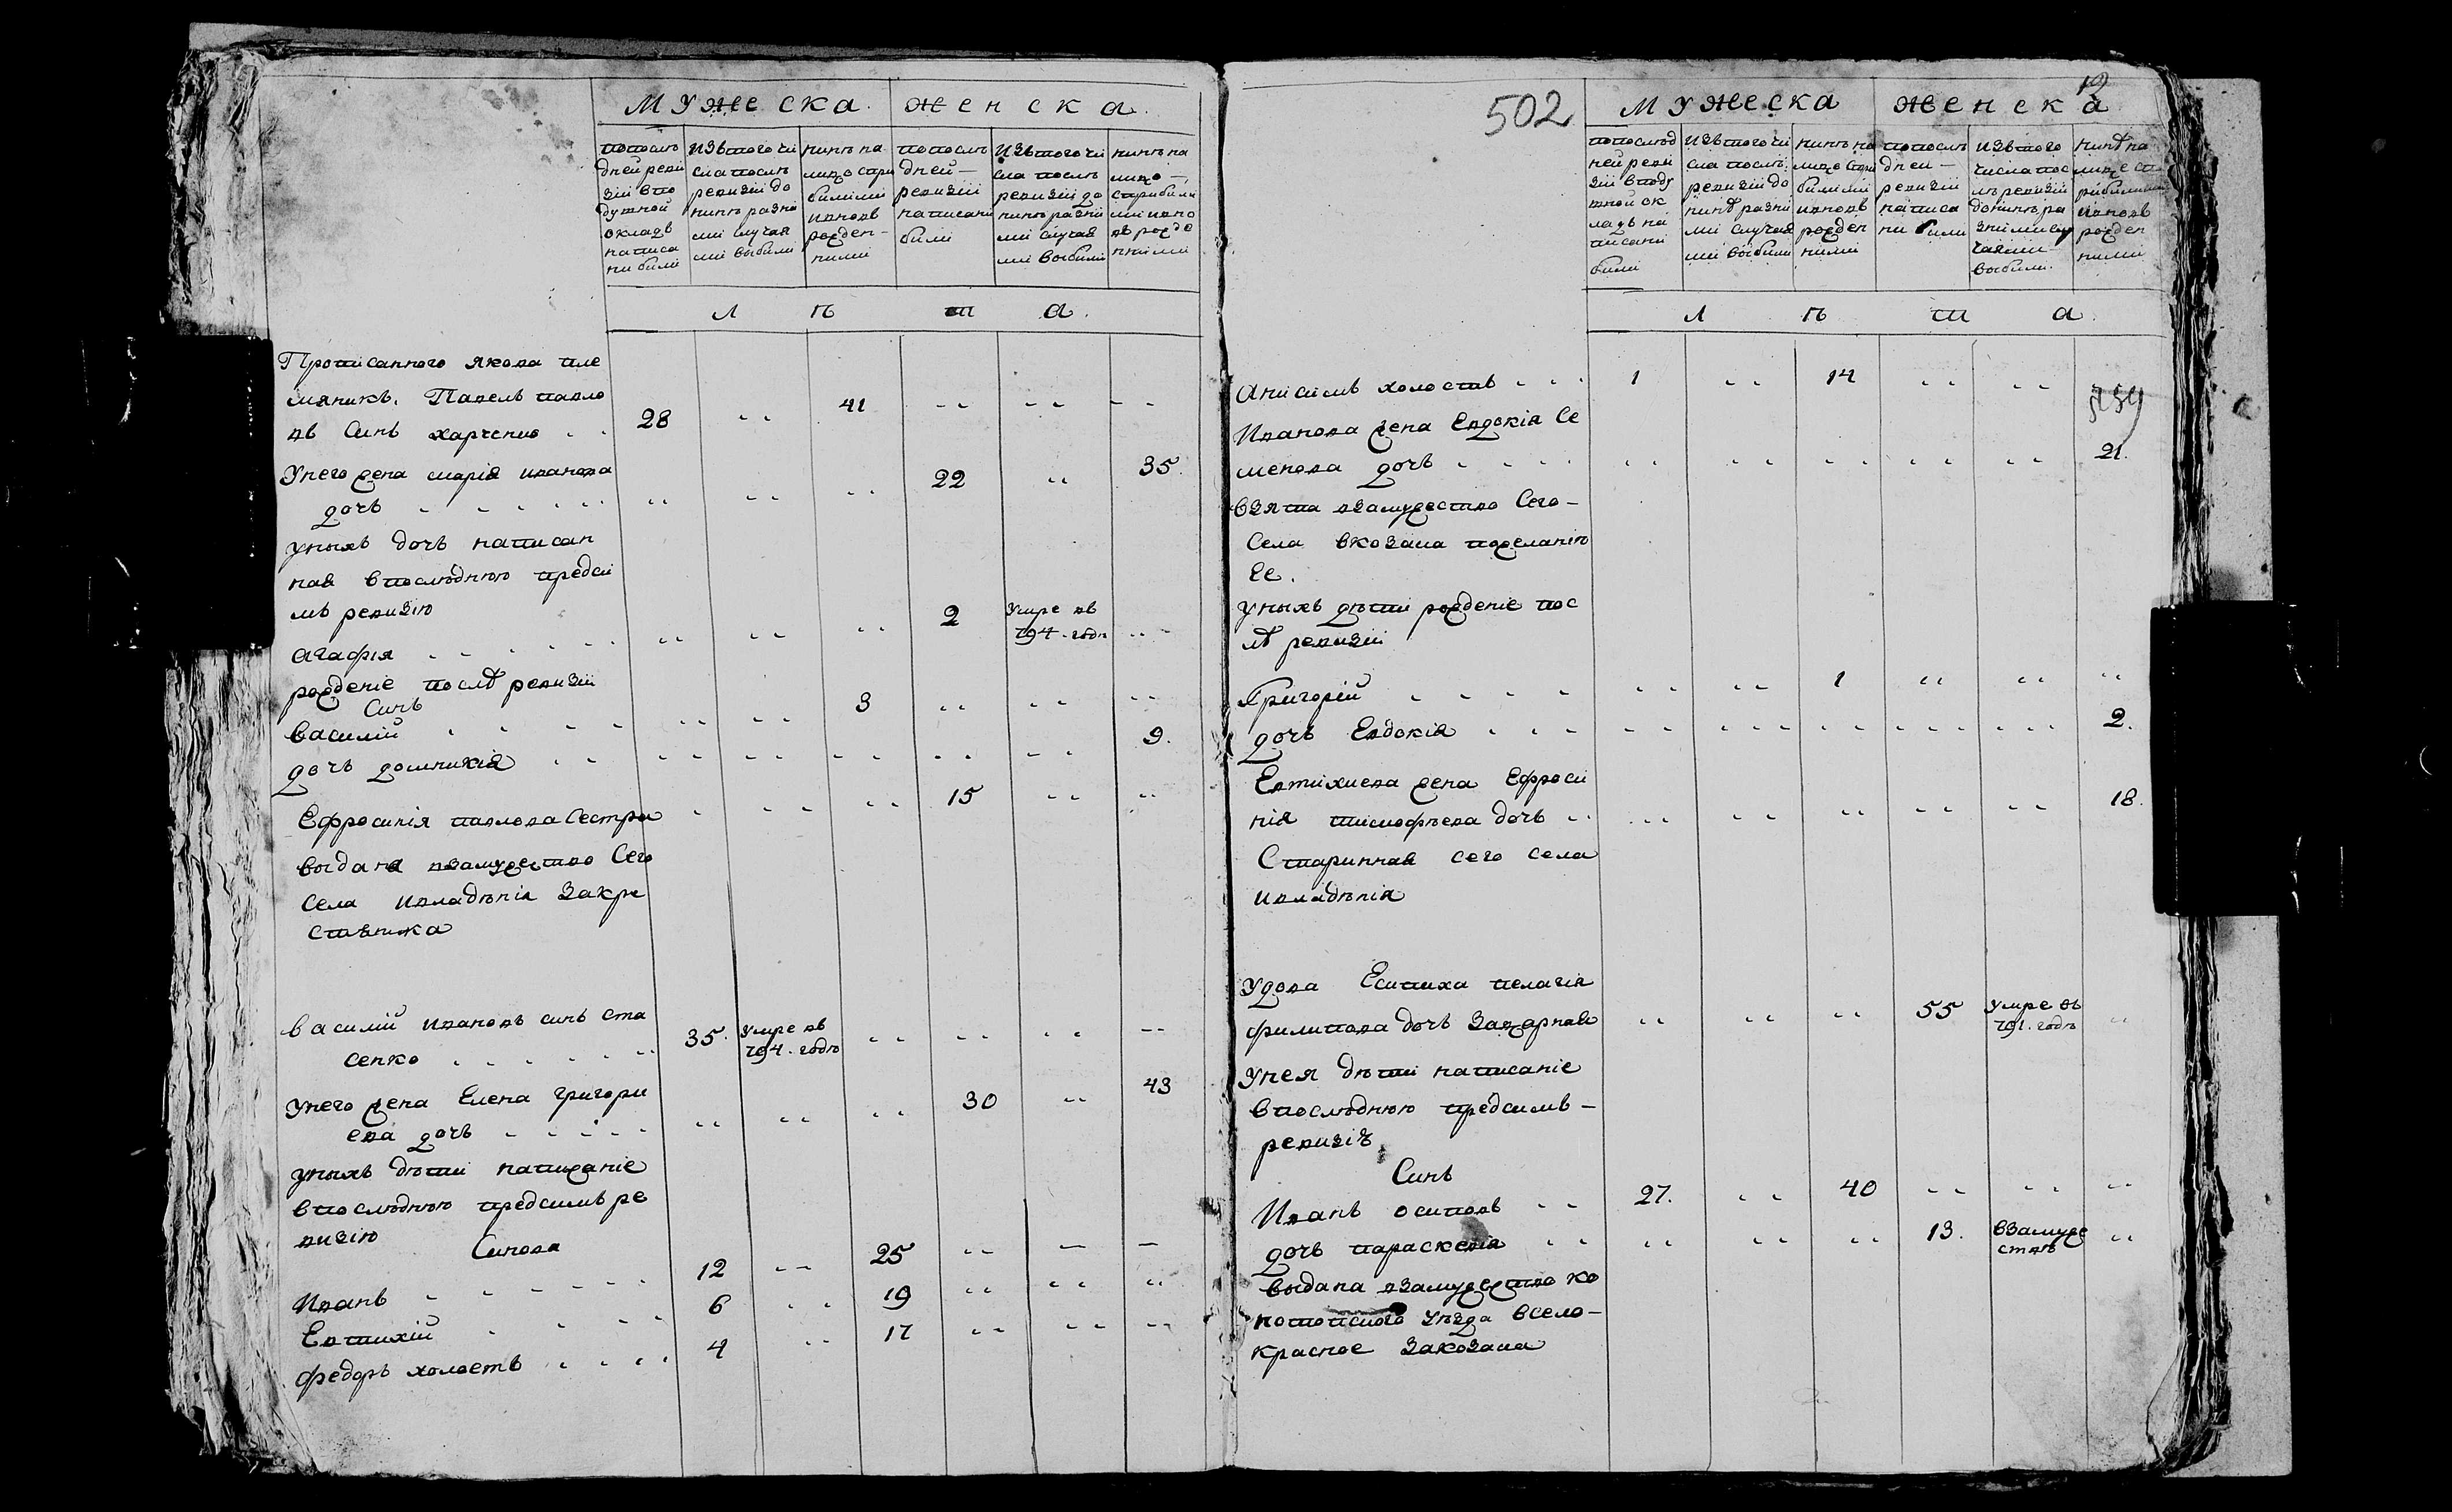 Мужеска. Женска.
попослѣ
дней реви
зіи впо
душной
окладъ
написа
ни были
Изътого чи
сла послѣ
ревизіи до
нинѣ разни
ми случая
ми выбыли
нинѣ на
лицо сприбылими
ивновъ
рожден-
ними
попослѣ
дней —
ревизіи
написани
были
Изътого чи
сла послѣ
ревизіи до
нинѣ разни
ми случая
ми выбыли
нинѣ на
лицо —
сприбыли
ми ивно
въ рожде
нними
л ѣ т а.
Прописанного Якова пле
мяникъ. Павелъ павло
въ Синъ харченко . . 28 .. 41 .. .. ..
Унего жена марія иванова
дочъ . . . . . .. .. .. 22 .. 35.
унихъ дочъ написан
ная впослѣднюю предси
мъ ревизію
агафія . . . . . .. .. .. 2 Умре въ 794. годѣ ..
рожденіе послѣ ревизіи
Синъ
василій . . . . .. .. 3 .. .. ..
дочъ домникія . . .. .. .. .. .. 9.
Ефросинія павлова Сестра . .. .. 15 .. ..
выдана взамужество Сего
Села ивладѣнія Закре
стьянина
василій ивановъ синъ ста
сенко . . . . . .. 35. Умре въ 794. годѣ .. .. .. ..
Унего жена Елена григори
ева дочъ . . . . . .. .. .. 30 .. 43
унихъ дѣти написаніе
впослѣднюю предсимъ ре
визію
Синова
Иванъ . . . . . 12 .. 25 .. — —
Евтихій . . . . 6 .. 19 .. .. ..
федоръ холостъ . . . . 4 .. 17 .. .. ..
502
12
Мужеска Женска
попослѣд
ней реви
зіи вподу
шной ок
ладъ на
писани
были
Изътого чи
сла послѣ
ревизіи до
нинѣ разни
ми случая
ми выбыли
нинѣ на
лицо спри
былими
ивновъ
рожден
ними
попослѣ
дней —
ревизіи
написа
ни были
Изътого
числа пос
лѣ ревизіи
донинѣ ра
зними слу
чаями
выбыли.
нинѣ на
лице сп
рибылими
ивновъ
рожден
ними
л ѣ т а.
Анисимъ холостъ . . . 1 .. 14 .. .. ..
Иванова жена Евдокія Се
менова дочъ . . . . .. .. .. .. .. 21.
взята взамужество Сего —
Села вкозака пожеланію
Ее.
унихъ дѣти рожденіе пос
лѣ ревизіи
Григорій . . . . .. .. 1 .. .. ..
дочъ Евдокія . . . .. .. .. .. .. 2.
Евтихиева жена Ефроси
нія тимофѣева дочъ .. ... .. .. .. .. 18.
Старинная сего села
ивладѣнія
Удова Есипиха пелагія
филипова дочъ Захарнае .. .. .. 55 Умре въ 791. годѣ ..
Унея дѣти написаніе
впослѣднюю предсимъ —
ревизію
Синъ
Иванъ осиповъ . . 27. .. 40 .. .. ..
дочъ параскевія . . .. .. .. 13. взамуже ствѣ ..
выдана взамужество ко
нотопского уѣзда всело —
красное Закозака